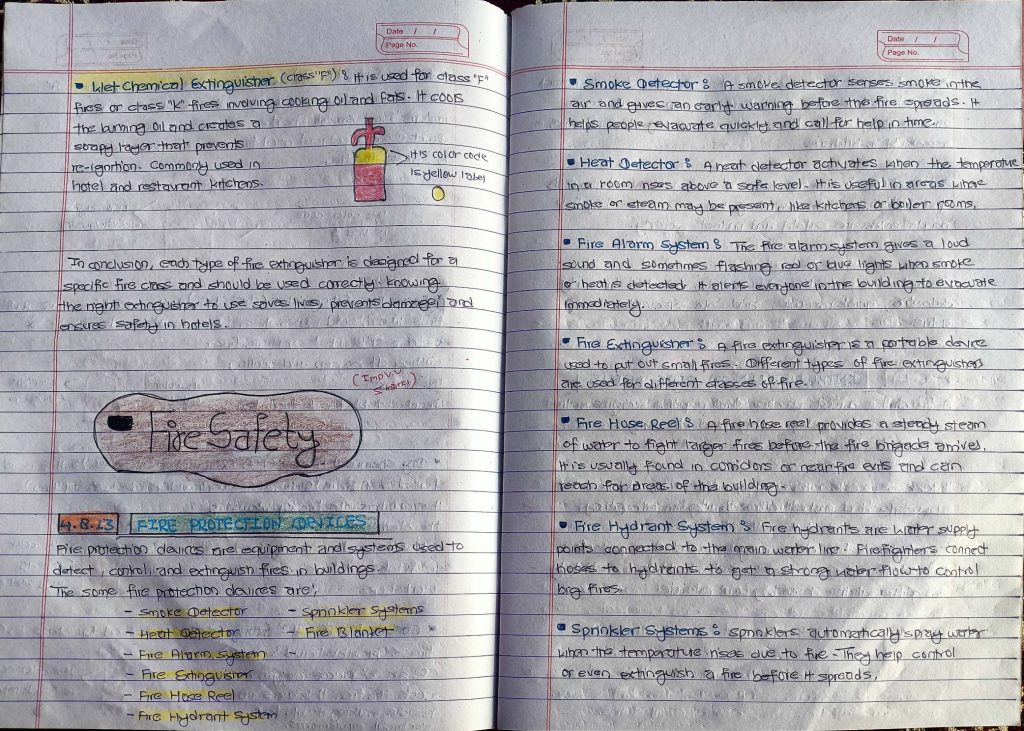 Date / /
Page No.
• Wet Chemical Extinguisher (class "F") : It is used for class "F"
fires or class "K" fires involving cooking oil and fats. It cools
the burning oil and creates a
soapy layer that prevents
re-ignition. Commonly used in
hotel and restaurant kitchens.
It is color code
is yellow label
In conclusion, each type of fire extinguisher is designed for a
specific fire class and should be used correctly. Knowing
the right extinguisher to use saves lives, prevents damage, and
ensures safety in hotels.
Fire Safety
4.8.13 FIRE PROTECTION DEVICES
Fire protection devices are equipment and systems used to
detect, control, and extinguish fires in buildings.
The some fire protection devices are;
- Smoke Detector - Sprinkler Systems
- Heat Detector - Fire Blanket
- Fire Alarm System -
- Fire Extinguisher
- Fire Hose Reel
- Fire Hydrant System
Date / /
Page No.
• Smoke Detector : A smoke detector senses smoke in the
air and gives an early warning before the fire spreads. It
helps people evacuate quickly and call for help in time.
• Heat Detector : A heat detector activates when the temperature
in a room rises above a safe level. It is useful in areas where
smoke or steam may be present, like kitchens or boiler rooms.
• Fire Alarm System : The fire alarm system gives a loud
sound and sometimes flashing red or blue lights when smoke
or heat is detected. It alerts everyone in the building to evacuate
immediately.
• Fire Extinguisher : A fire extinguisher is a portable device
used to put out small fires. Different types of fire extinguishers
are used for different classes of fire.
• Fire Hose Reel : A fire hose reel provides a steady steam
of water to fight larger fires before the fire brigade arrives.
It is usually found in corridors or near fire exits and can
reach far areas of the building.
• Fire Hydrant System : Fire hydrants are water supply
points connected to the main water line. Firefighters connect
hoses to hydrants to get a strong water flow to control
big fires.
• Sprinkler Systems : Sprinklers automatically spray water
when the temperature rises due to fire. They help control
or even extinguish a fire before it spreads.